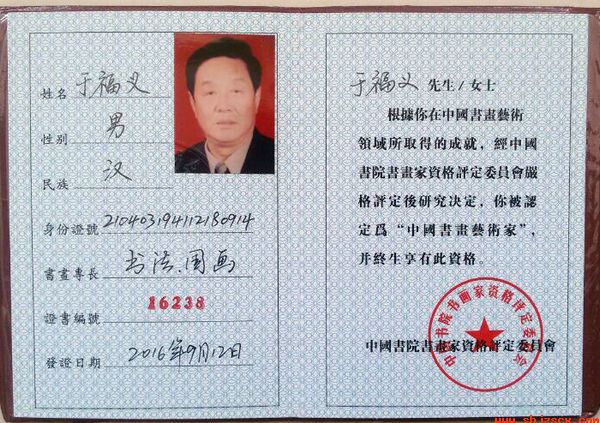 姓名 于福义
性别 男
民族 汉
身份證號 210403194112180914
書畫專長 书法.国画
證書編號 16238
發證日期 2016年9月12日
于福义 先生/女士
根據你在中國書畫藝術
領域所取得的成就，經中國
書院書畫家資格評定委員會嚴
格評定後研究決定，你被認
定爲“中國書畫藝術家”，
并終生享有此資格。
中国书院书画家资格评定委员会
中國書院書畫家資格評定委員會
www.shjzscx.com